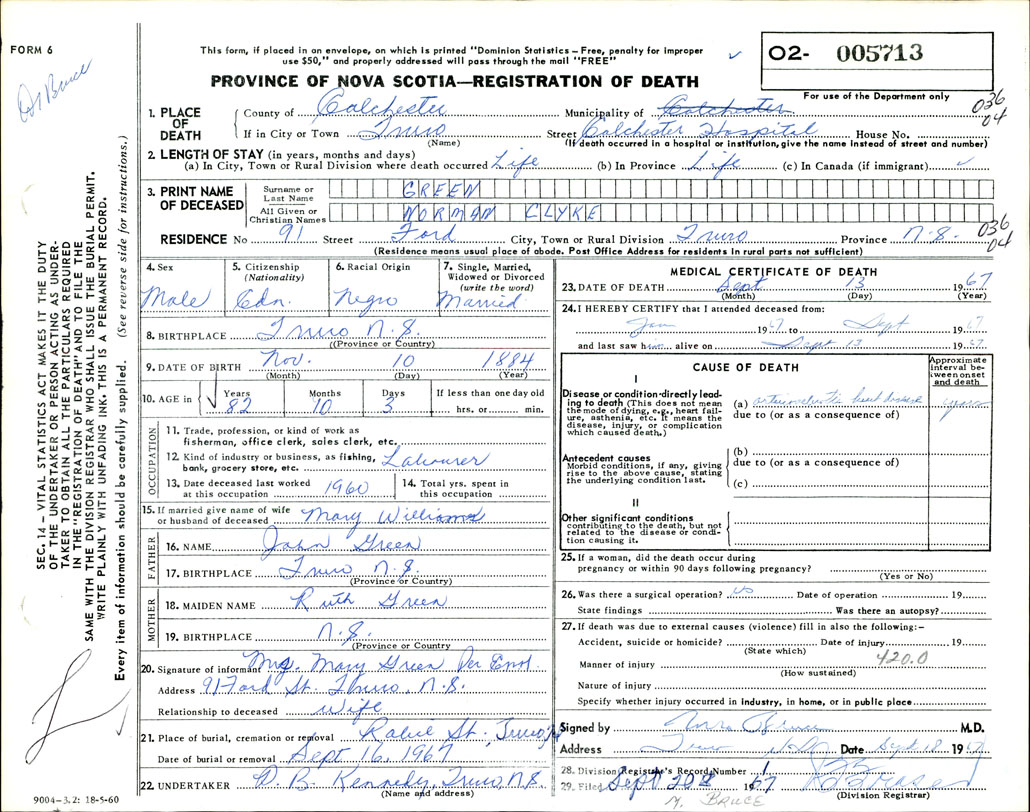 FORM 6
Dr Bruce
This form, if placed in an envelope, on which is printed "Dominion Statistics – Free, penalty for improper
use $50," and properly addressed will pass through the mail "FREE"
02- 005713
PROVINCE OF NOVA SCOTIA—REGISTRATION OF DEATH
For use of the Department only
036
04
1. PLACE OF DEATH
County of Colchester Municipality of Colchester
If in City or Town Truro Street Colchester Hospital House No.
(Name) (If death occurred in a hospital or institution, give the name instead of street and number)
2. LENGTH OF STAY (in years, months and days)
(a) In City, Town or Rural Division where death occurred Life (b) In Province Life (c) In Canada (if immigrant)
3. PRINT NAME OF DECEASED
Surname or Last Name GREEN
All Given or Christian Names NORMAN CLYKE
RESIDENCE No 91 Street Ford City, Town or Rural Division Truro Province N.S.
036
04
(Residence means usual place of abode. Post Office Address for residents in rural parts not sufficient)
4. Sex
Male
5. Citizenship
(Nationality)
Cdn.
6. Racial Origin
Negro
7. Single, Married,
Widowed or Divorced
(write the word)
Married
8. BIRTHPLACE Truro N.S.
(Province or Country)
9. DATE OF BIRTH Nov. 10 1884
(Month) (Day) (Year)
10. AGE in Years Months Days If less than one day old
82 10 3 hrs. or min.
OCCUPATION
11. Trade, profession, or kind of work as
fisherman, office clerk, sales clerk, etc.
12. Kind of industry or business, as fishing,
bank, grocery store, etc. Labourer
13. Date deceased last worked
at this occupation 1960
14. Total yrs. spent in
this occupation
15. If married give name of wife
or husband of deceased Mary Williams
FATHER
16. NAME John Green
17. BIRTHPLACE Truro N.S.
(Province or Country)
MOTHER
18. MAIDEN NAME Ruth Green
19. BIRTHPLACE N.S.
(Province or Country)
20. Signature of informant Mrs. Mary Green Per
Address 91 Ford St. Truro, N.S.
Relationship to deceased Wife
21. Place of burial, cremation or removal St., Truro,
Date of burial or removal Sept 16, 1967
22. UNDERTAKER D. B. Kennedy, Truro N.S.
(Name and address)
MEDICAL CERTIFICATE OF DEATH
23. DATE OF DEATH Sept 13 1967
(Month) (Day) (Year)
24. I HEREBY CERTIFY that I attended deceased from:
Jan 1967 to Sept 1967
and last saw him alive on Sept 13 1967
CAUSE OF DEATH
Approximate
interval be-
tween onset
and death
I
Disease or condition directly lead-
ing to death (This does not mean
the mode of dying, e.g., heart fail-
ure, asthenia, etc. It means the
disease, injury, or complication
which caused death.)
(a) arteriosclerotic heart disease years
due to (or as a consequence of)
Antecedent causes
Morbid conditions, if any, giving
rise to the above cause, stating
the underlying condition last.
(b)
due to (or as a consequence of)
(c)
II
Other significant conditions
contributing to the death, but not
related to the disease or condi-
tion causing it.
25. If a woman, did the death occur during
pregnancy or within 90 days following pregnancy?
(Yes or No)
26. Was there a surgical operation? no Date of operation 19
State findings Was there an autopsy?
27. If death was due to external causes (violence) fill in also the following:–
Accident, suicide or homicide? Date of injury 19
(State which)
Manner of injury 420.0
(How sustained)
Nature of injury
Specify whether injury occurred in industry, in home, or in public place
Signed by M.D.
Address Truro Date Sept 18 1967
28. Division Registrar's Record Number 1
29. Filed Sept 20 1967
(Division Registrar)
M. BRUCE
SEC. 14 – VITAL STATISTICS ACT MAKES IT THE DUTY
OF THE UNDERTAKER OR PERSON ACTING AS UNDER-
TAKER TO OBTAIN ALL THE PARTICULARS REQUIRED
IN THE "REGISTRATION OF DEATH" AND TO FILE THE
SAME WITH THE DIVISION REGISTRAR WHO SHALL ISSUE THE BURIAL PERMIT.
WRITE PLAINLY WITH UNFADING INK. THIS IS A PERMANENT RECORD.
Every item of information should be carefully supplied. (See reverse side for instructions.)
9004-3.2: 18-5-60